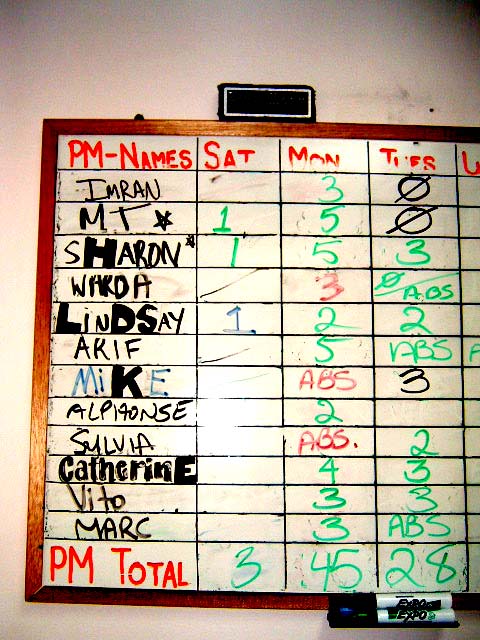 PM-NAMES SAT MON TUES
IMRAN 3 Ø
M.T * 1 5 Ø
SHARON* 1 5 3
WARDA / 3 Ø/ABS
LiNDSAY 1 2 2
ARIF 5 ABS
MiKE ABS 3
ALPHONSE 2
SYLVIA ABS. 2
CatherinE 4 3
Vito 3 3
MARC 3 ABS
PM TOTAL 3 45 28
EXPO
EXPO